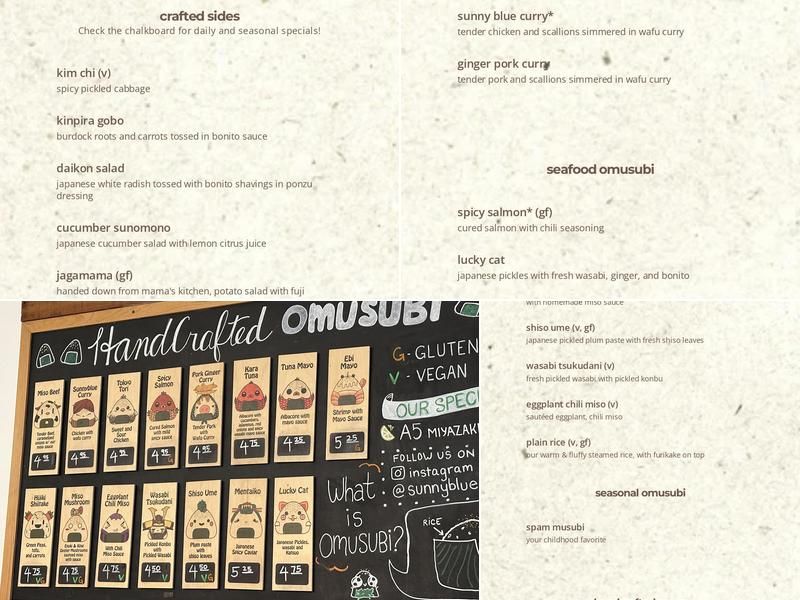 crafted sides
Check the chalkboard for daily and seasonal specials!
kim chi (v)
spicy pickled cabbage
kinpira gobo
burdock roots and carrots tossed in bonito sauce
daikon salad
japanese white radish tossed with bonito shavings in ponzu
dressing
cucumber sunomono
japanese cucumber salad with lemon citrus juice
jagamama (gf)
handed down from mama's kitchen, potato salad with fuji
sunny blue curry*
tender chicken and scallions simmered in wafu curry
ginger pork curry
tender pork and scallions simmered in wafu curry
seafood omusubi
spicy salmon* (gf)
cured salmon with chili seasoning
lucky cat
japanese pickles with fresh wasabi, ginger, and bonito
HandCrafted OMUSUBI
Miso Beef
4 95
Sunnyblue Curry
Chicken with wafu curry
4 95
Tokyo Tori
Sweet and Sour Chicken
4 95
Spicy Salmon
Cured Salmon with mild spicy sauce
4 95 G
Pork Ginger Curry
Tender Pork with Wafu Curry
4 95
Kara Tuna
4 75
Tuna Mayo
Albacore with mayo sauce
4 35
Ebi Mayo
Shrimp with Mayo Sauce
5 25 G
Hijiki Shiitake
Green Peas, tofu, and carrots
4 75 VG
Miso Mushroom
4 75 VG
Eggplant Chili Miso
With Chili Miso Sauce
4 75 V
Wasabi Tsukudani
Pickled Konbu with Pickled Wasabi
4 50 V
Shiso Ume
Plum paste with shiso leaves
4 50 VG
Mentaiko
Japanese Spicy Caviar
5 35
Lucky Cat
Japanese Pickles, Wasabi and Katsuo
4 75
G - GLUTEN
V - VEGAN
OUR SPECI
A5 MIYAZAK
FOLLOW US ON
instagram
@sunnyblue
What
is
Omusubi?
RICE
with homemade miso sauce
shiso ume (v, gf)
japanese pickled plum paste with fresh shiso leaves
wasabi tsukudani (v)
fresh pickled wasabi with pickled konbu
eggplant chili miso (v)
sautéed eggplant, chili miso
plain rice (v, gf)
our warm & fluffy steamed rice, with furikake on top
seasonal omusubi
spam musubi
your childhood favorite